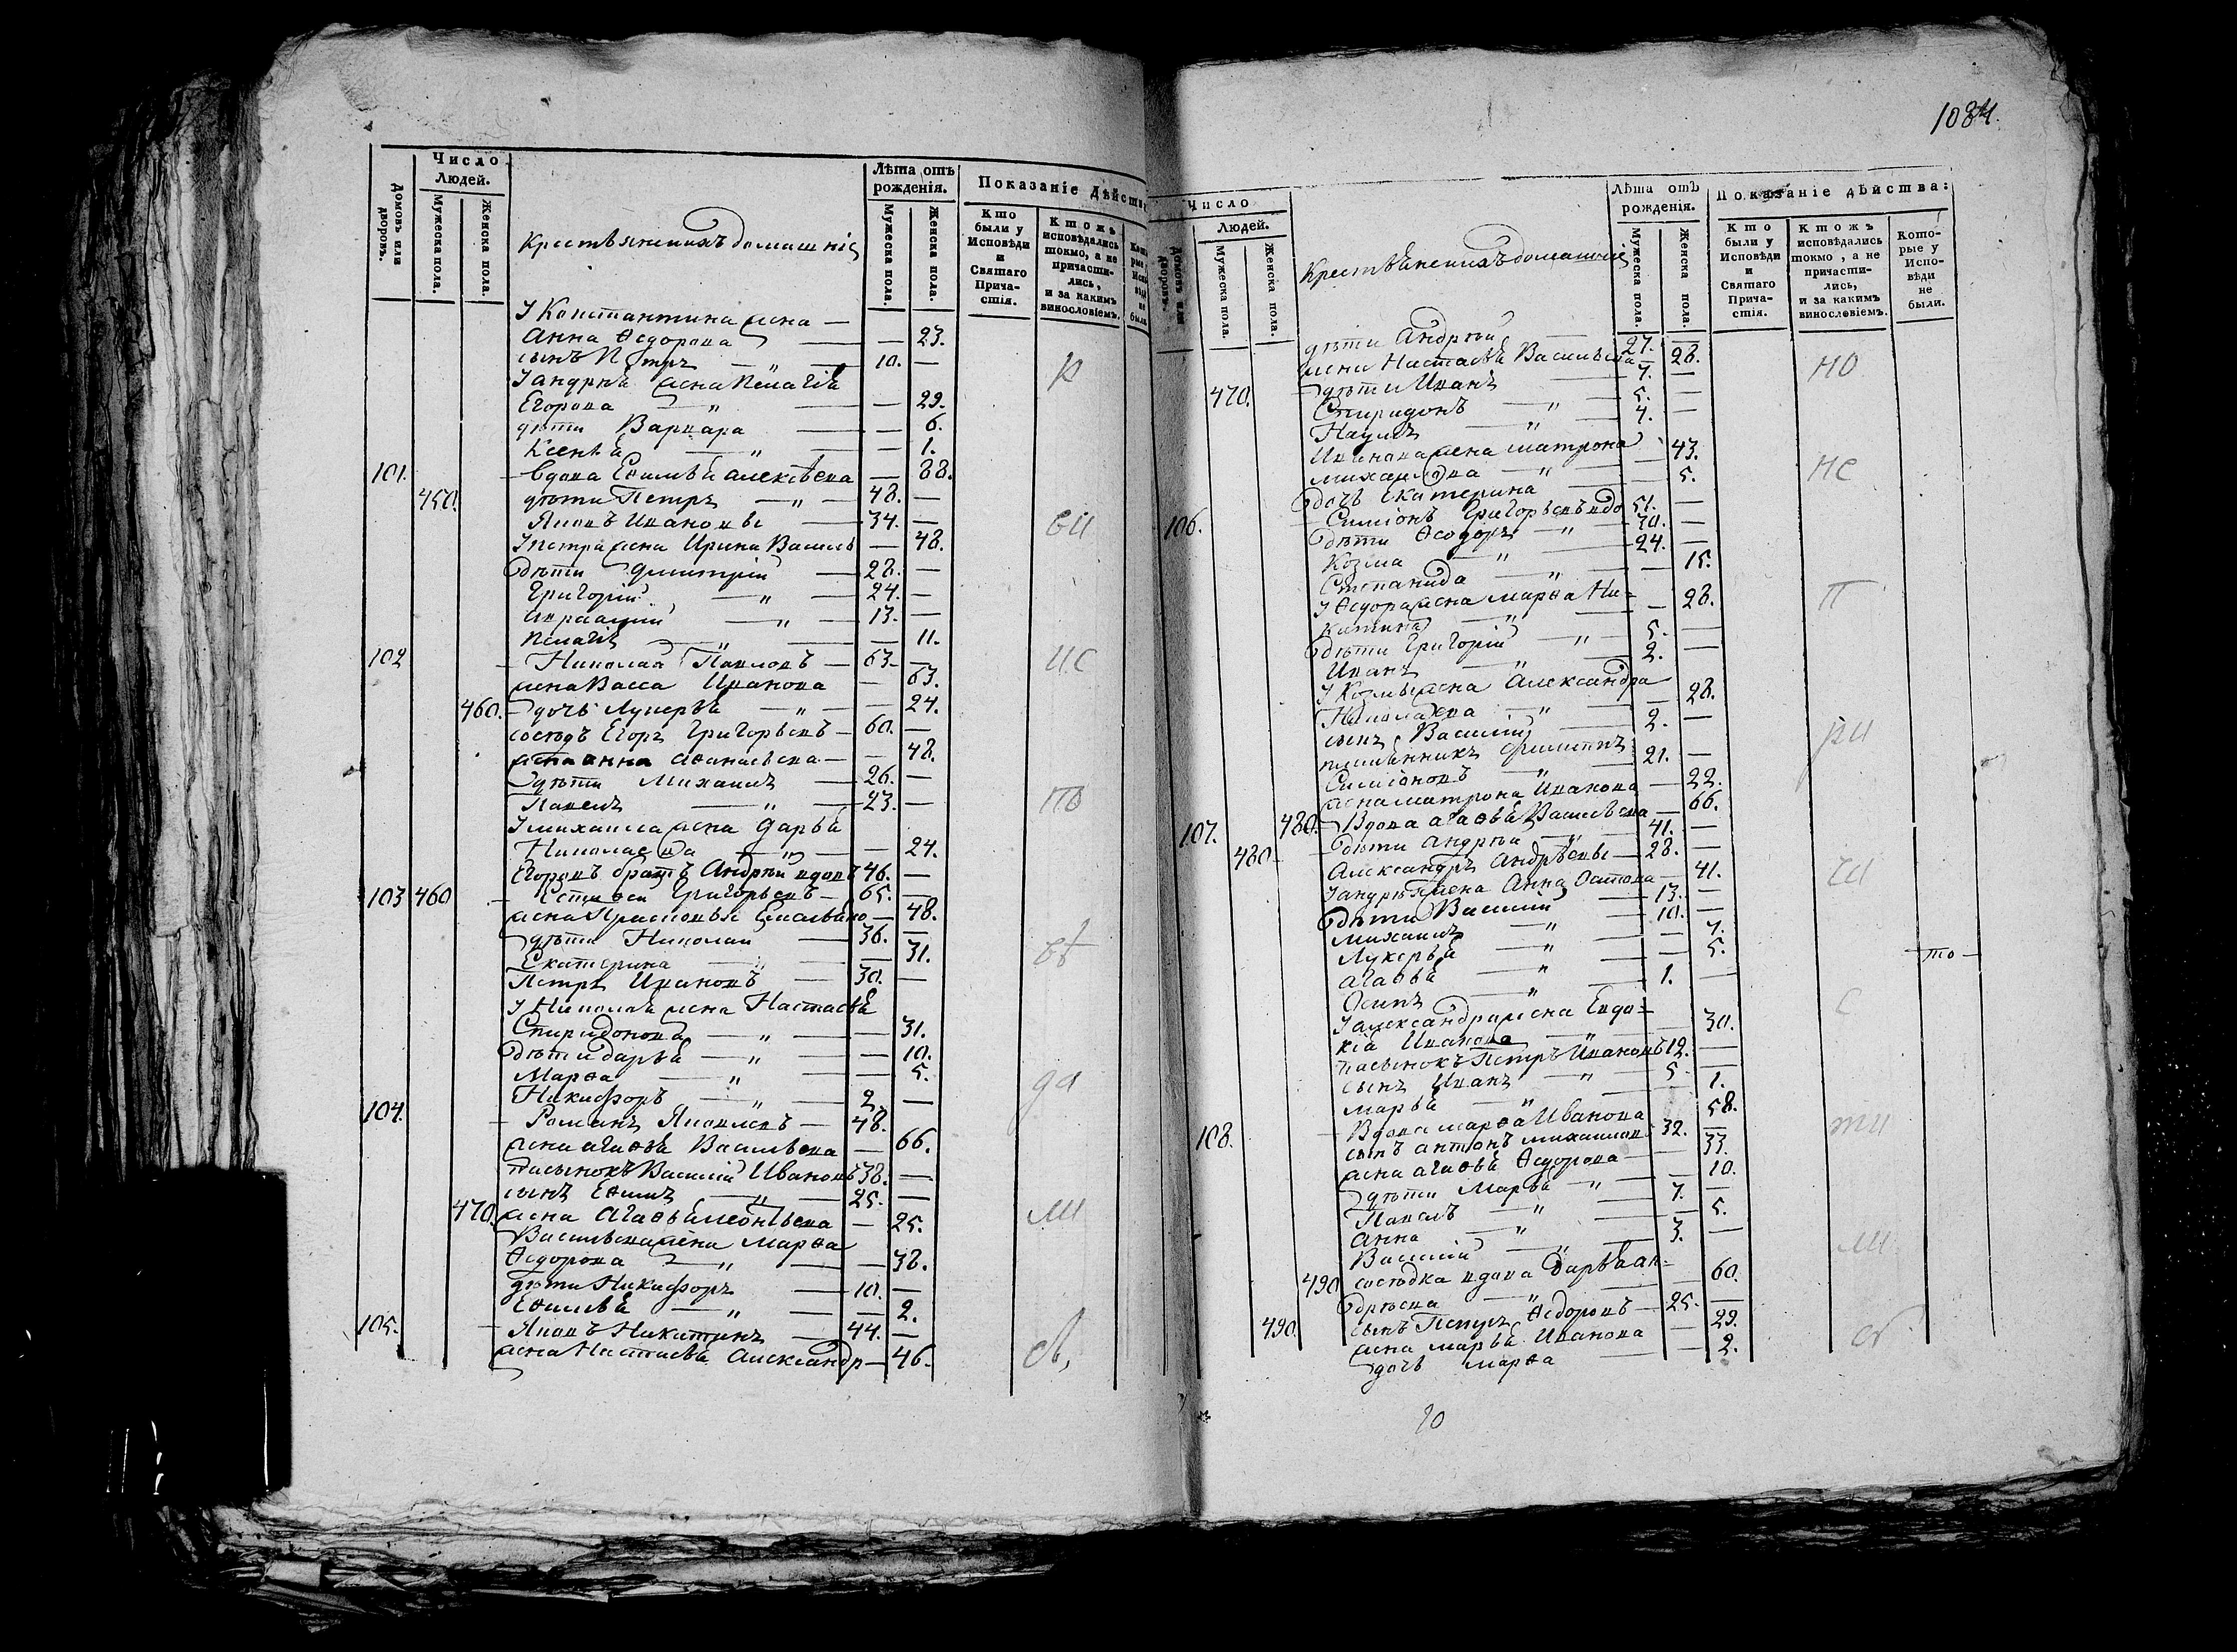 108
Число
Людей.
Домовъ или дворовъ.
Мужеска пола.
Женска пола.
Крестьянскихъ домашнія
Лѣта отъ рожденія.
Мужеска пола.
Женска пола.
Показаніе дѣйства:
Кто были у Исповѣди и Святаго Причастія.
Ктожъ исповѣдались токмо, а не причастились, и за какимъ винословіемъ.
У Константина жена —
Анна Ѳедорова — — 23.
сынъ Петръ — " — 10. —
У Андрея жена Пелагія
Егорова — " — — 29.
дѣти Варвара — — 6.
Ксенія — " — — 1.
101. — вдова Евѳимія Алексѣева — 88.
450. дѣти Петръ — " — 48. —
Яковъ Ивановы — 34. —
У Петра жена Ирина Василь — 48.
дѣти Дмитрій — 28. —
Григорій — " — 24. —
Авраамій — " — 13. —
Пелагія — " — — 11.
102 — Николай Павловъ — 63 —
жена Васса Иванова — 63.
460. — дочь Лукерья — " — — 24.
сосѣдъ Егоръ Григорьевъ — 60. —
жена Анна Аѳанасьева — — 48.
дѣти Михаилъ — 26. —
Павелъ — " — 23. —
У Михаила жена Дарья
Николаева — " — — 24.
Егоровъ братъ Андрей вдовъ 46. —
103 460 — Григорьевъ — 65. —
жена Емельяно — 48.
дѣти Николай — 36. —
Екатерина — " — — 31.
Петръ Ивановъ — 30. —
У Николая жена Настасья
Спиридонова — " — — 31.
дѣти Дарья — " — — 10.
Марѳа — " — — 5.
Никифоръ — " — 2. —
104. — Романъ Яковлевъ — 48. —
жена Агаѳья Васильева — 66.
пасынокъ Василій Ивановъ 38. —
сынъ Евѳимъ — " — 25. —
470. жена Агаѳья Леонтьева — 25.
Васильева жена Марѳа
Ѳедорова — " — — 38.
дѣти Никифоръ — 10. —
Евѳимія — " — — 2.
105. — Яковъ Никитинъ — 44. —
жена Настасья Александр — 46.
Число
Людей.
Домовъ или дворовъ.
Мужеска пола.
Женска пола.
Крестьянскихъ домашніе
Лѣта отъ рожденія.
Мужеска пола.
Женска пола.
Показаніе дѣйства:
Кто были у Исповѣди и Святаго Причастія.
Ктожъ исповѣдались токмо, а не причастились, и за какимъ винословіемъ.
Которые у Исповѣди не были.
дѣти Андрей — 27. —
жена Настасья Васильева — 28.
470. — дѣти Иванъ — 7. —
Спиридонъ — " — 5. —
Наумъ — " — 4. —
Иванова жена Матрона
Михайлова — " — — 43.
дочь Екатерина — — 5.
106. — Симіонъ Григорьевъ вдо 51. —
дѣти Ѳедоръ — " — 30. —
Козма — " — 24. —
Степанида — " — — 15.
У Ѳедора жена Марѳа Ни-
китина — " — — 28.
дѣти Григорій — " — 5. —
Иванъ — " — 2. —
У Козмы жена Александра
Николаева — " — — 28.
сынъ Василій — 2. —
племянникъ Филиппъ
Симіоновъ — " — 21. —
жена Матрона Иванова — 22.
107. 480. — Вдова Агаѳья Васильева — 66.
480 — дѣти Андрей — " — 41. —
Александръ Андреевы — 28. —
У Андрея жена Анна Осипова — 41.
дѣти Василій — 13. —
Михаилъ — " — 10. —
Лукерья — " — — 7.
Агаѳья — " — — 5.
Осипъ — " — 1. —
У Александра жена Евдо-
кія Иванова — " — — 30.
пасынокъ Петръ Ивановъ 12. —
сынъ Иванъ — " — 5 —
Марья — " — — 1.
108. — Вдова Марѳа Иванова — 58.
сынъ Антонъ Михайлов 32. —
жена Агаѳья Ѳедорова — 33.
дѣти Марья — " — — 10.
Павелъ — " — 7. —
Анна — " — — 5.
Василій — " — 3. —
490 сосѣдка вдова Дарья Ан-
дреева — " — — 60.
490. сынъ Ѳедоровъ — 25. —
жена Марья Иванова — 29.
дочь Марѳа — — 2.
20